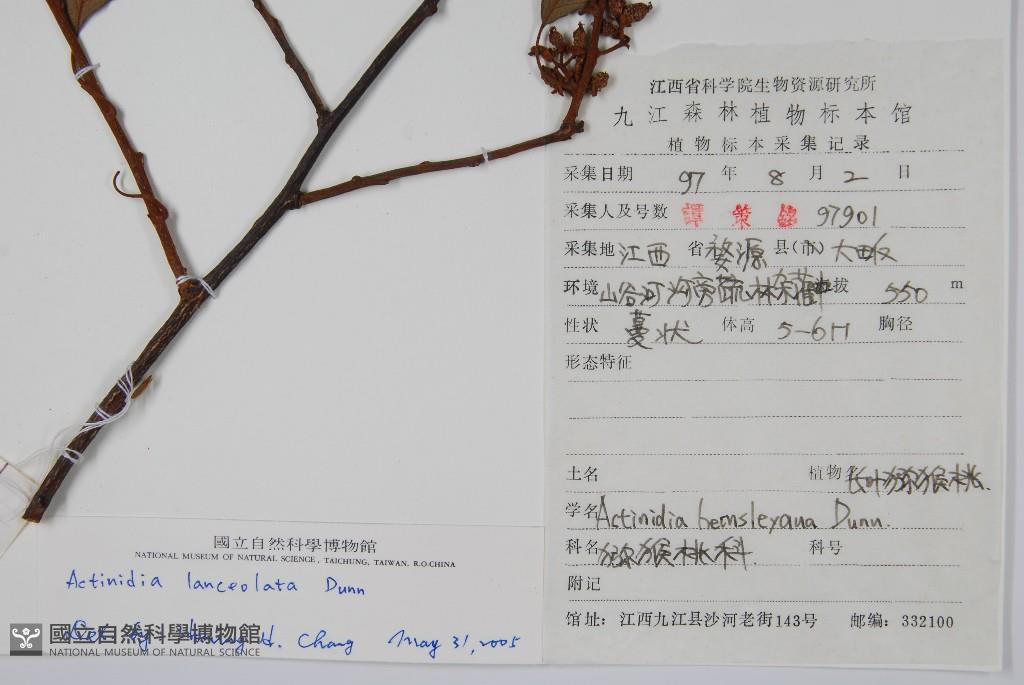 江西省科学院生物资源研究所
九江森林植物标本馆
植物标本采集记录
采集日期 97 年 8 月 2 日
采集人及号数 譚策銘 97901
采集地 江西 省 婺源 县(市) 大田坂
环境 山谷河沟旁疏林 拔 550 m
性状 蔓状 体高 5-6M 胸径
形态特征
土名 植物名 长叶猕猴桃.
学名 Actinidia hemsleyana Dunn.
科名 猕猴桃科. 科号
附记
馆址：江西九江县沙河老街143号 邮编：332100
國立自然科學博物館
NATIONAL MUSEUM OF NATURAL SCIENCE, TAICHUNG, TAIWAN, R.O.CHINA
Actinidia lanceolata Dunn
H. Chang May 31, 2005
國立自然科學博物館
NATIONAL MUSEUM OF NATURAL SCIENCE